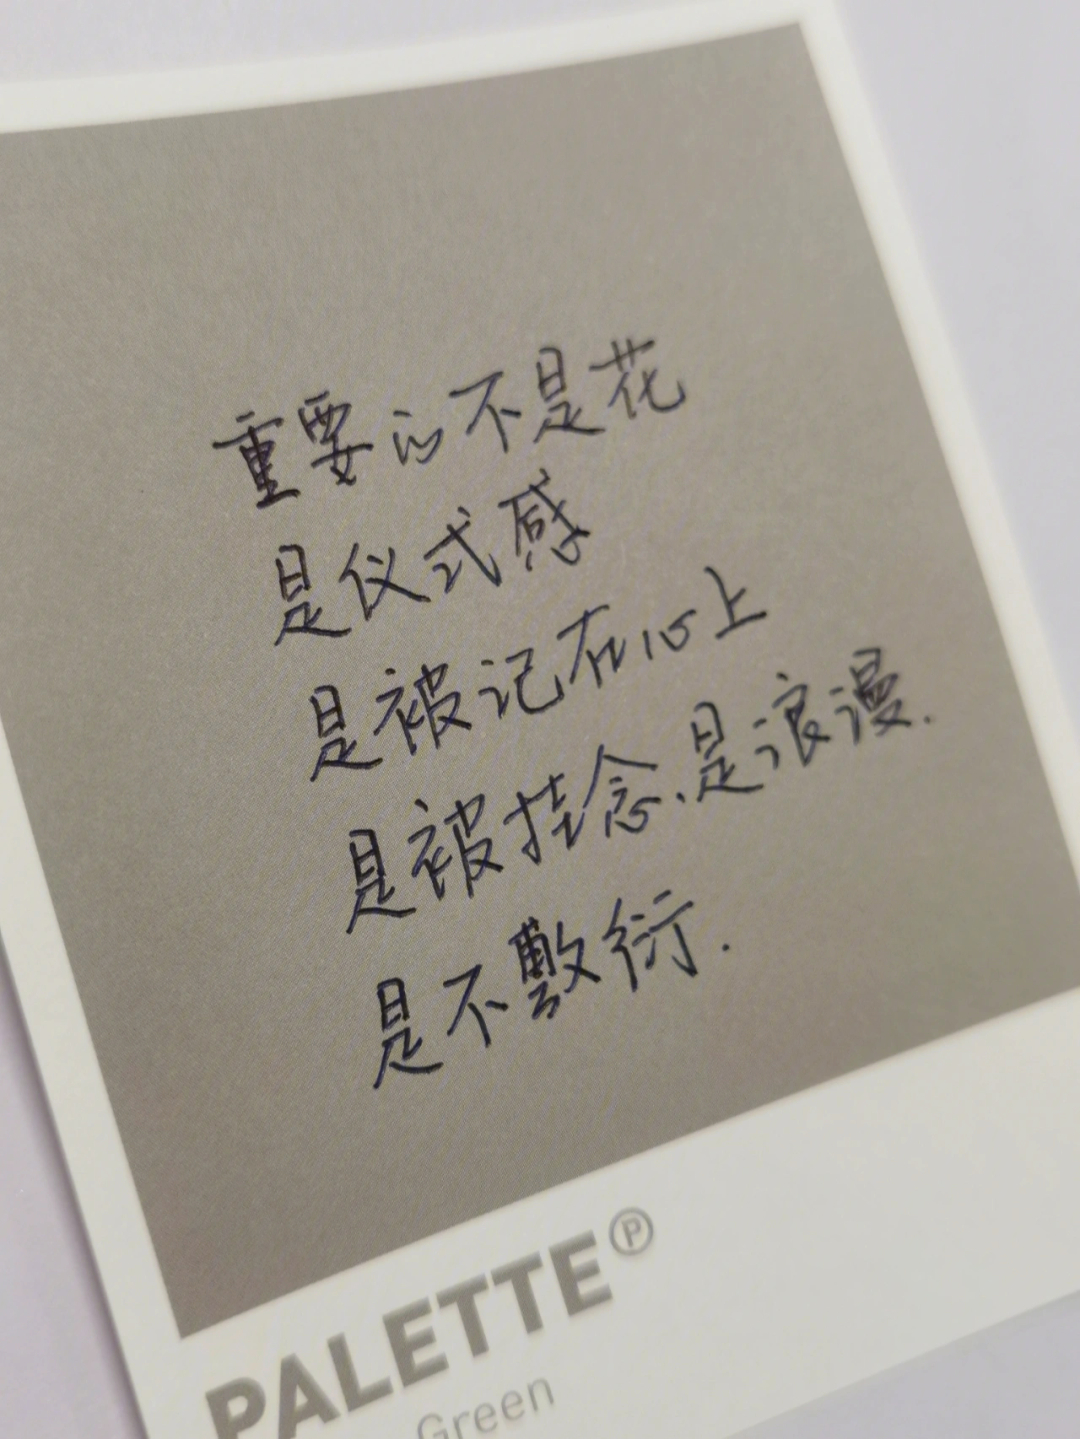 重要的不是花
是仪式感
是被记在心上
是被挂念.是浪漫.
是不敷衍.
PALETTE Ⓟ
Green